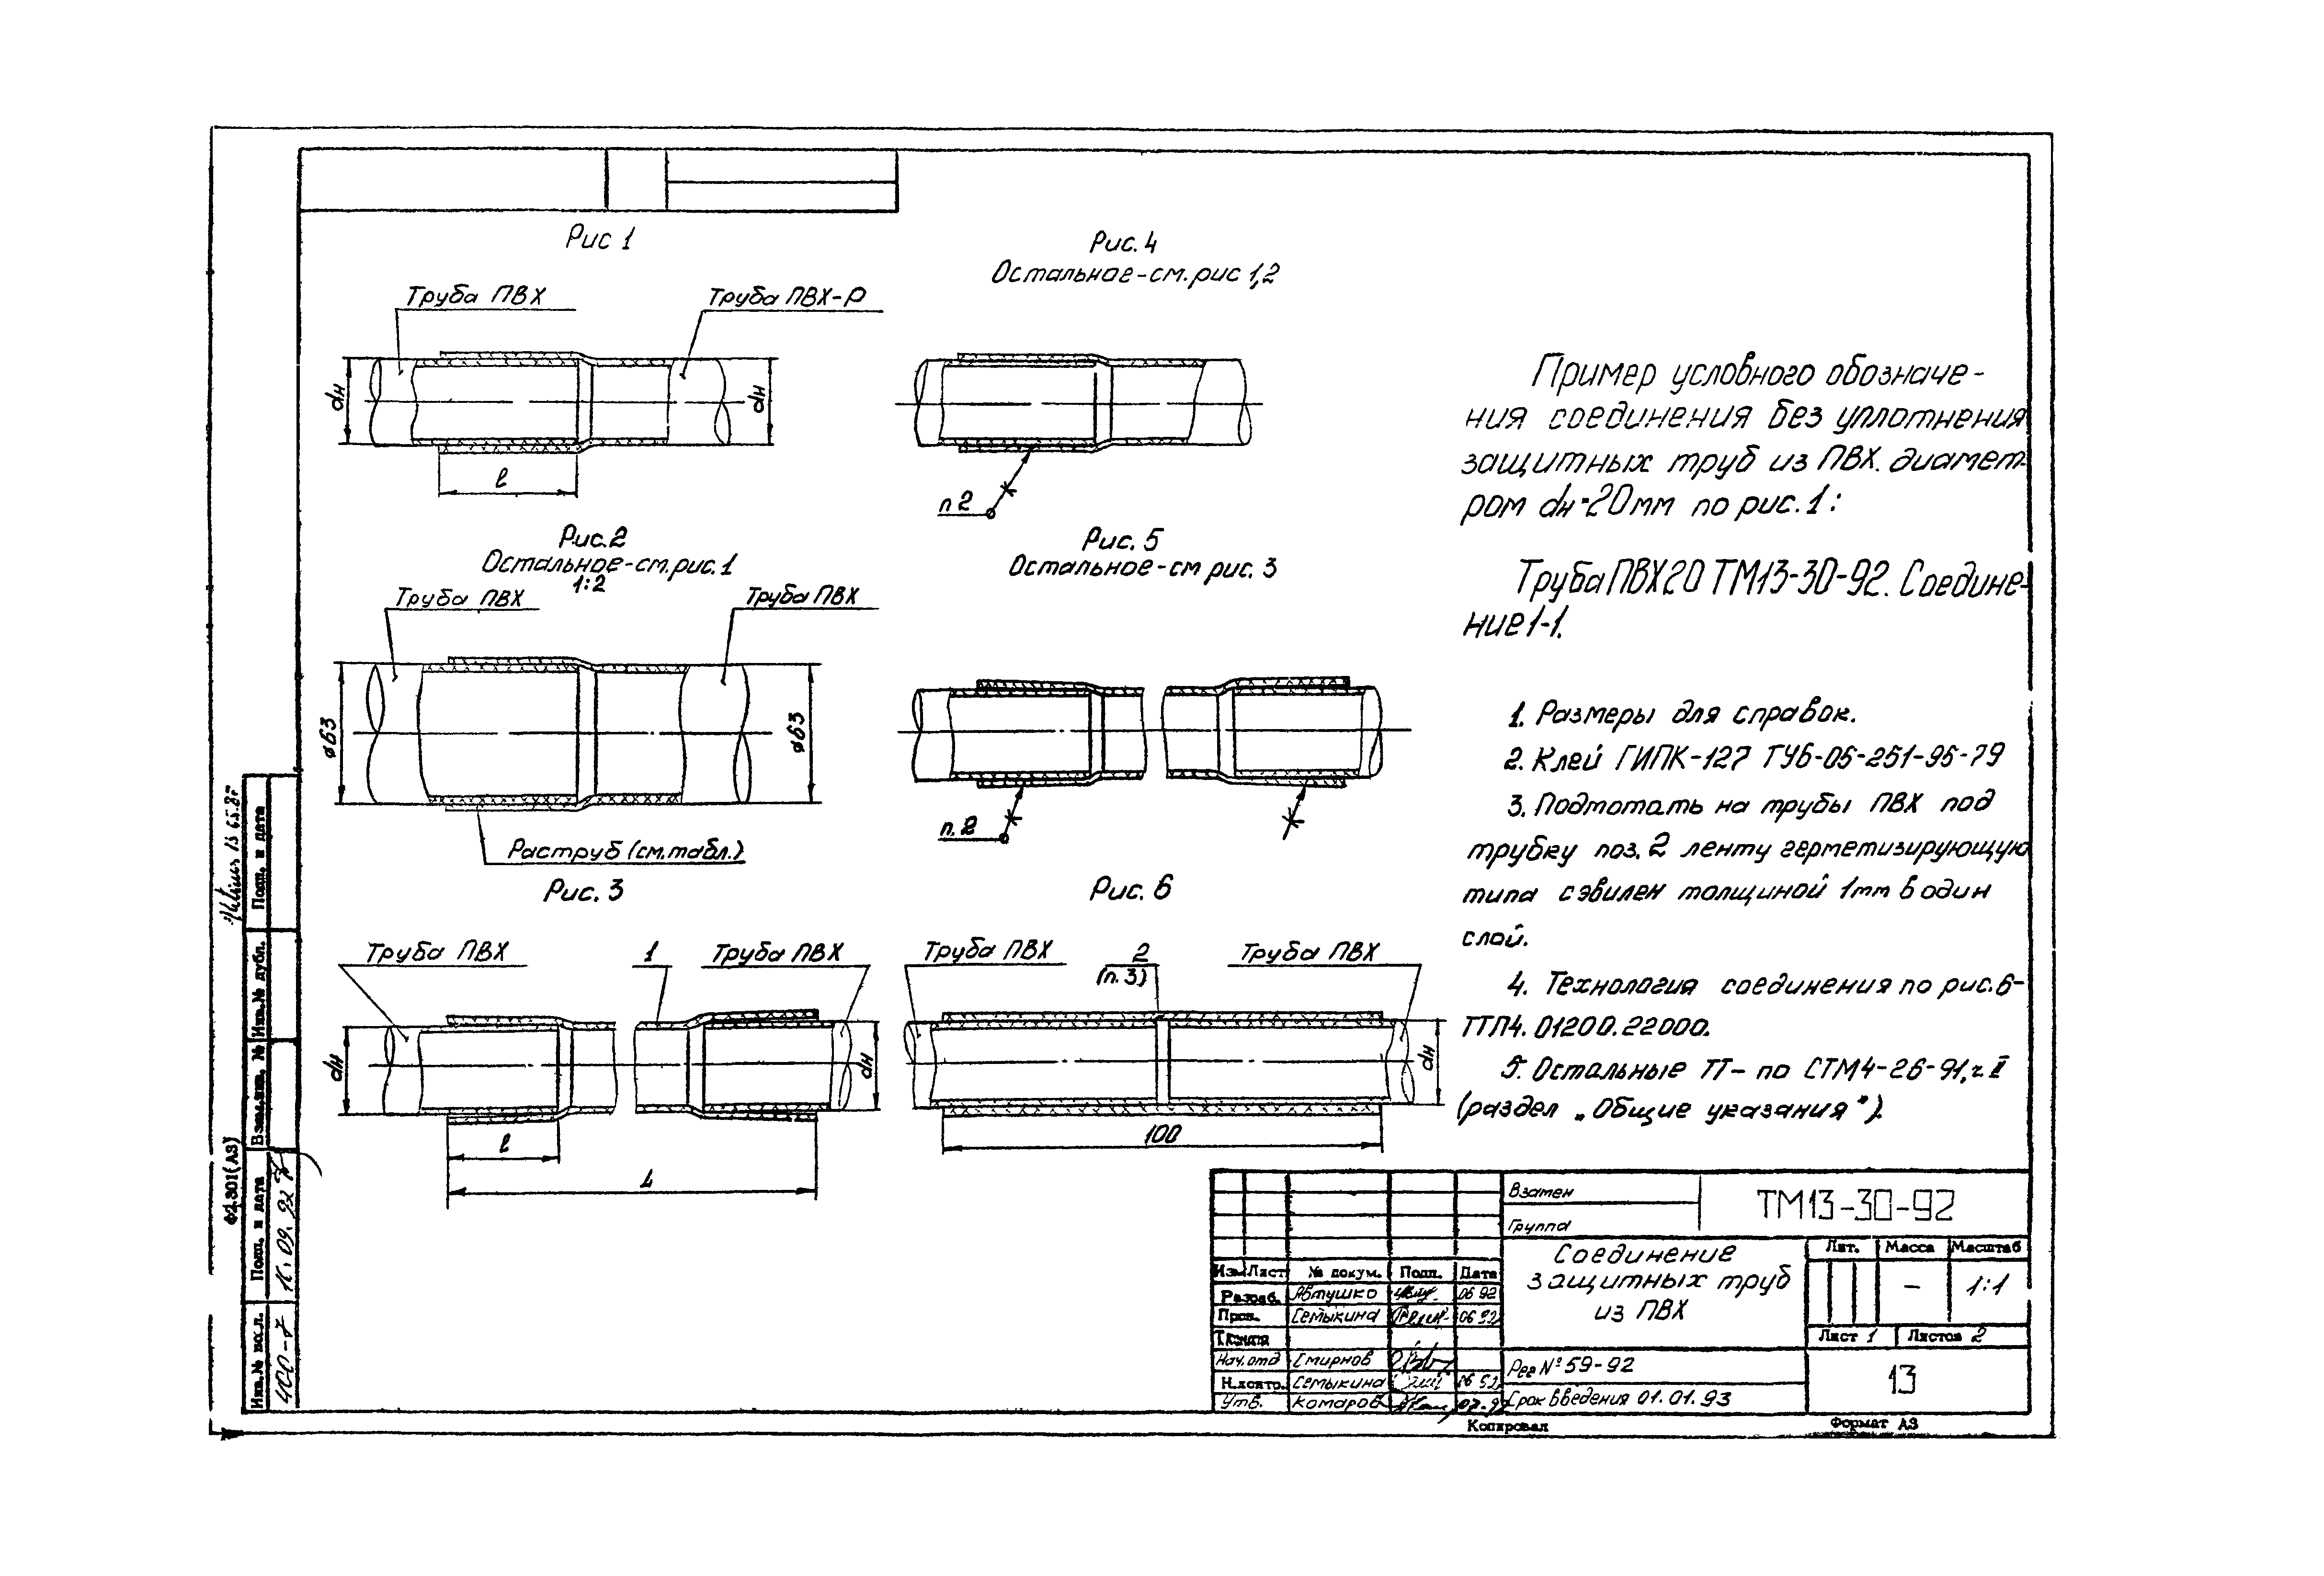 Рис 1
Труба ПВХ
Труба ПВХ-Р
dн
dн
l
Рис.2
Остальное-см.рис.1
1:2
Труба ПВХ
Труба ПВХ
ø63
ø63
Раструб (см.табл.)
Рис. 3
Труба ПВХ
1
Труба ПВХ
dн
dн
l
L
Рис. 4
Остальное-см.рис 1,2
п 2
Рис. 5
Остальное-см рис. 3
п. 2
Рис. 6
Труба ПВХ
2
(п. 3)
Труба ПВХ
dн
100
Пример условного обозначе-
ния соединения без уплотнения
защитных труб из ПВХ. диамет-
ром dн=20мм по рис. 1:
Труба ПВХ20 ТМ13-30-92. Соедине-
ние 1-1.
1. Размеры для справок.
2. Клей ГИПК-127 ТУ6-05-251-95-79
3. Подмотать на трубы ПВХ под
трубку поз. 2 ленту герметизирующую
типа сэвилен толщиной 1мм в один
слой.
4. Технология соединения по рис.6-
ТТП4. 01200. 22000.
5. Остальные ТТ- по СТМ4-26-91, ч. II
(раздел „Общие указания").
Взамен
Группа
ТМ13-30-92
Соединение
защитных труб
из ПВХ
Лит. Масса Масштаб
– 1:1
Лист 1 Листов 2
Изм Лист № докум. Подп. Дата
Разраб. Явтушко 06 92
Пров. Семыкина 06 92
Т.контр.
Нач. отд Смирнов
Н.контр. Семыкина
Утв. Комаров
Рег № 59-92
Срок введения 01.01.93
13
Копировал
Формат А3
Ф2.301(А3)
Инв.№ подл. Подп. и дата Взам.инв. № Инв.№ дубл. Подп. и дата
400-7